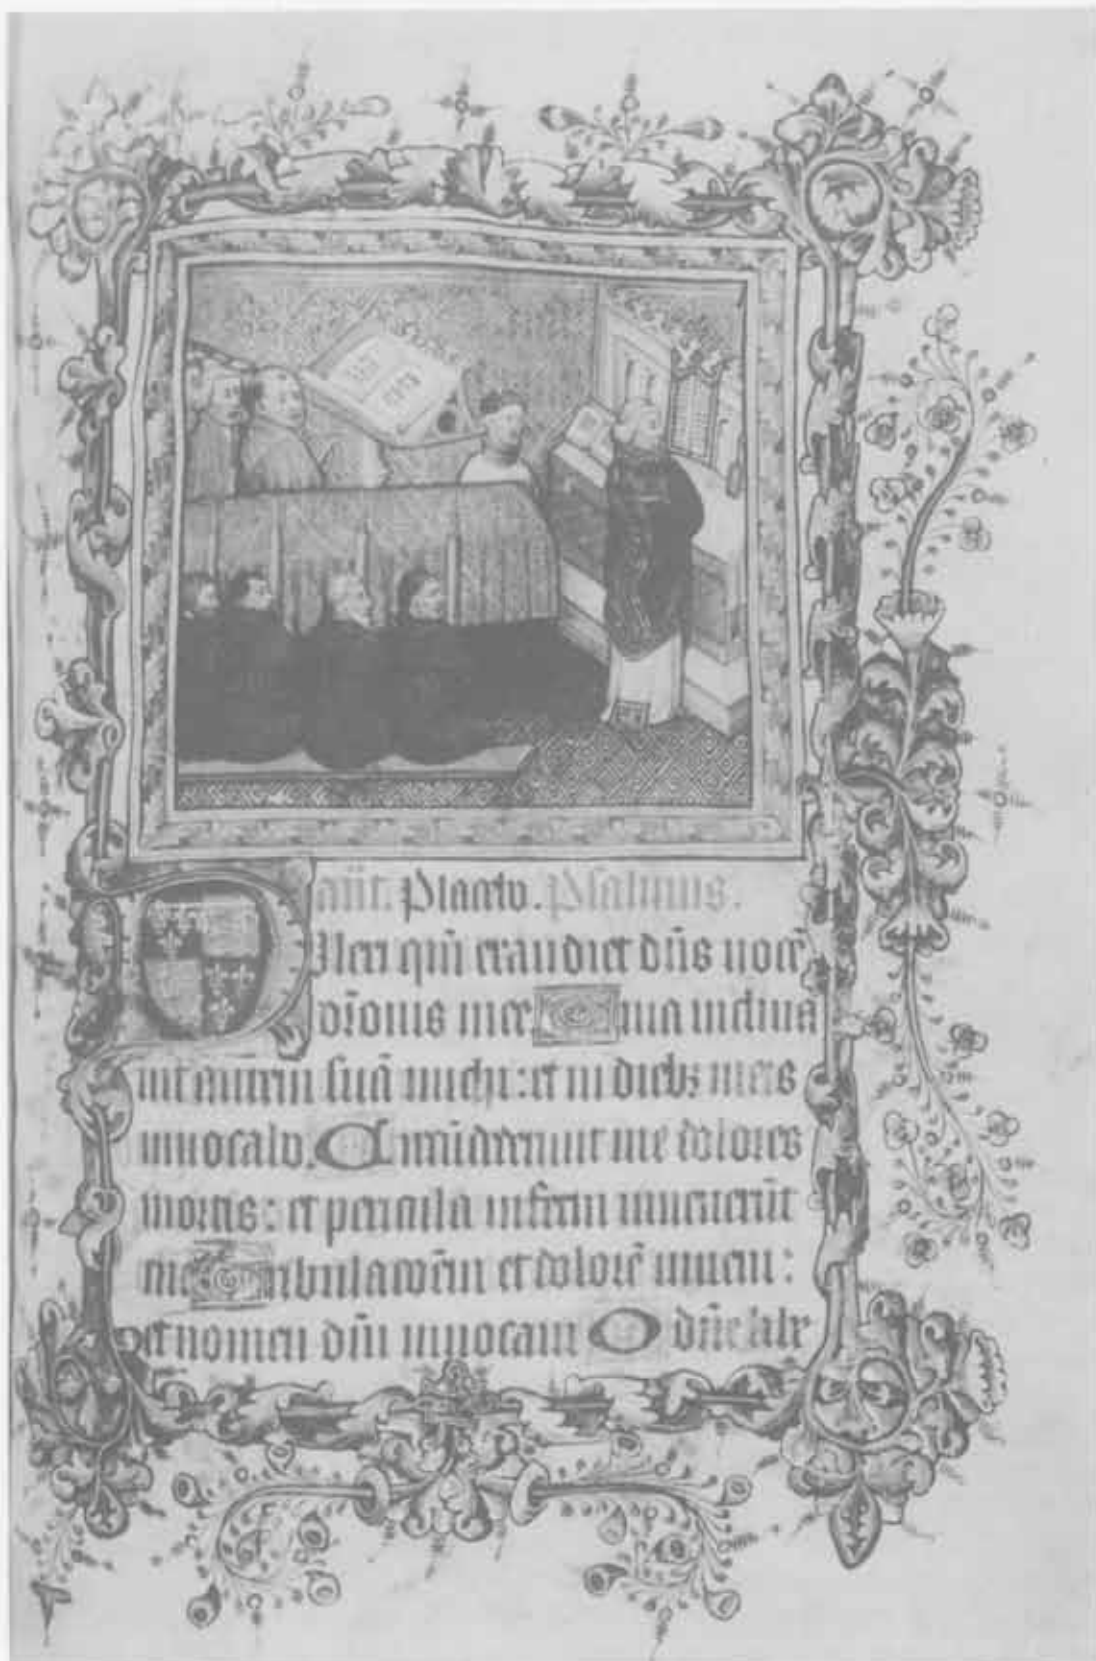 añt. Placebo. Psalmus.
Dilexi qm̄ exaudiet dñs vocē
or̄onis mee. Quia inclina
uit aurem suā michi: et in dieb; meis
inuocabo. Circūdederunt me dolores
mortis: et pericula inferni inuenerūt
me Tribulacōem et dolorē inueni:
et nomen dñi inuocaui O dñe